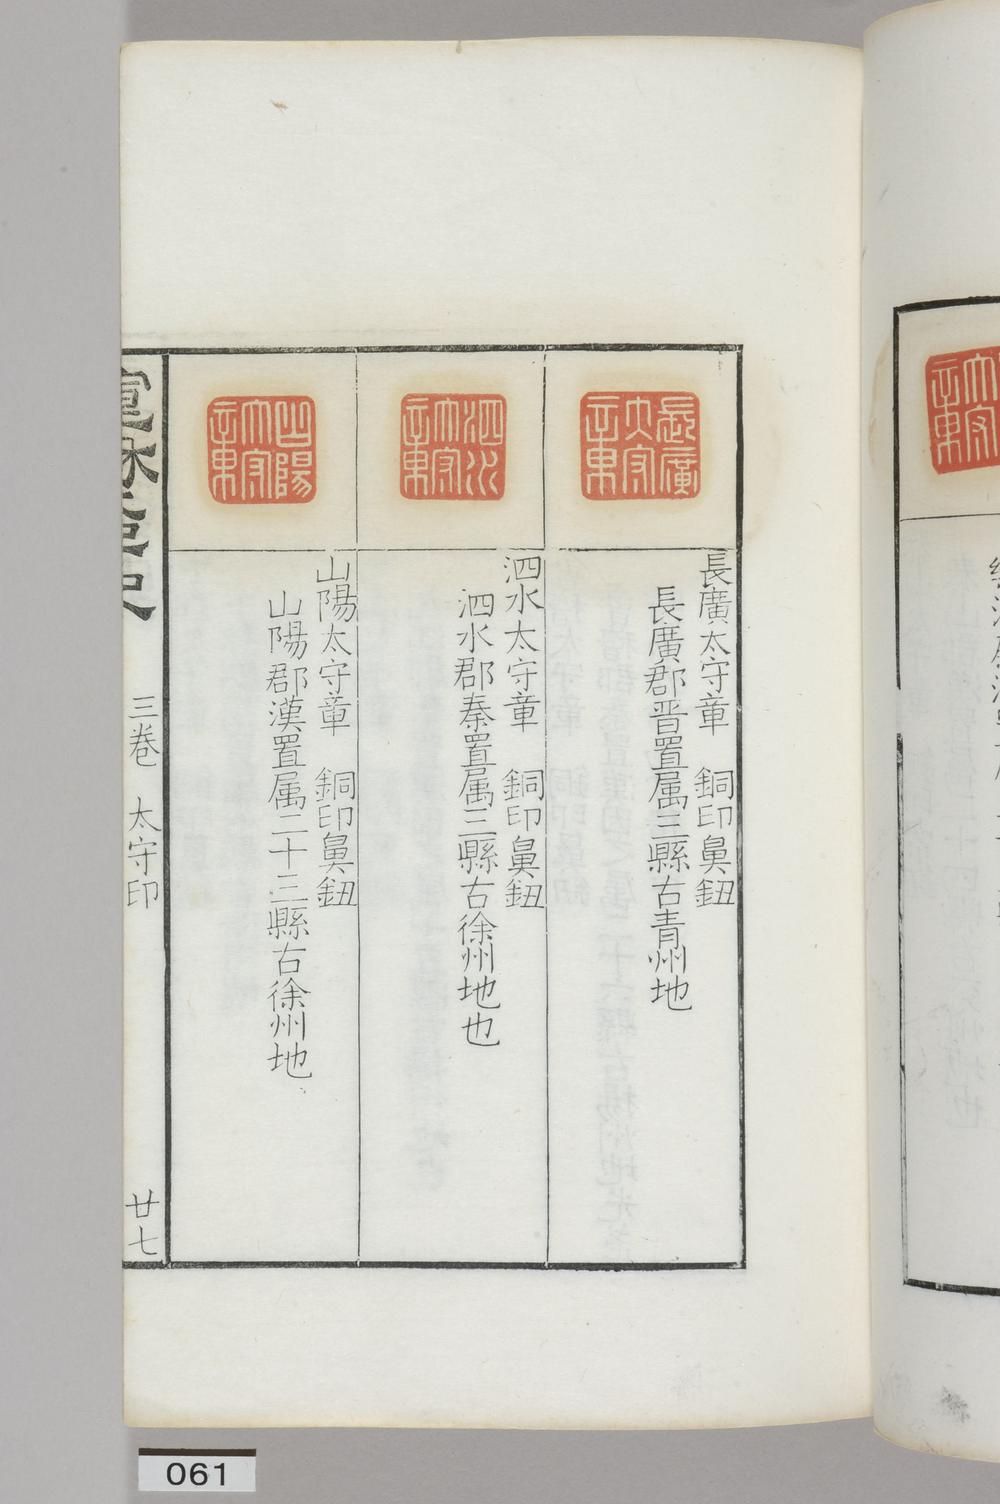 長廣太守章
長廣太守章　銅印鼻鈕
長廣郡晋置属三縣古青州地
泗水太守章
泗水太守章　銅印鼻鈕
泗水郡秦置属三縣古徐州地也
山陽太守章
山陽太守章　銅印鼻鈕
山陽郡漢置属二十三縣古徐州地
三卷　太守印
廿七
061